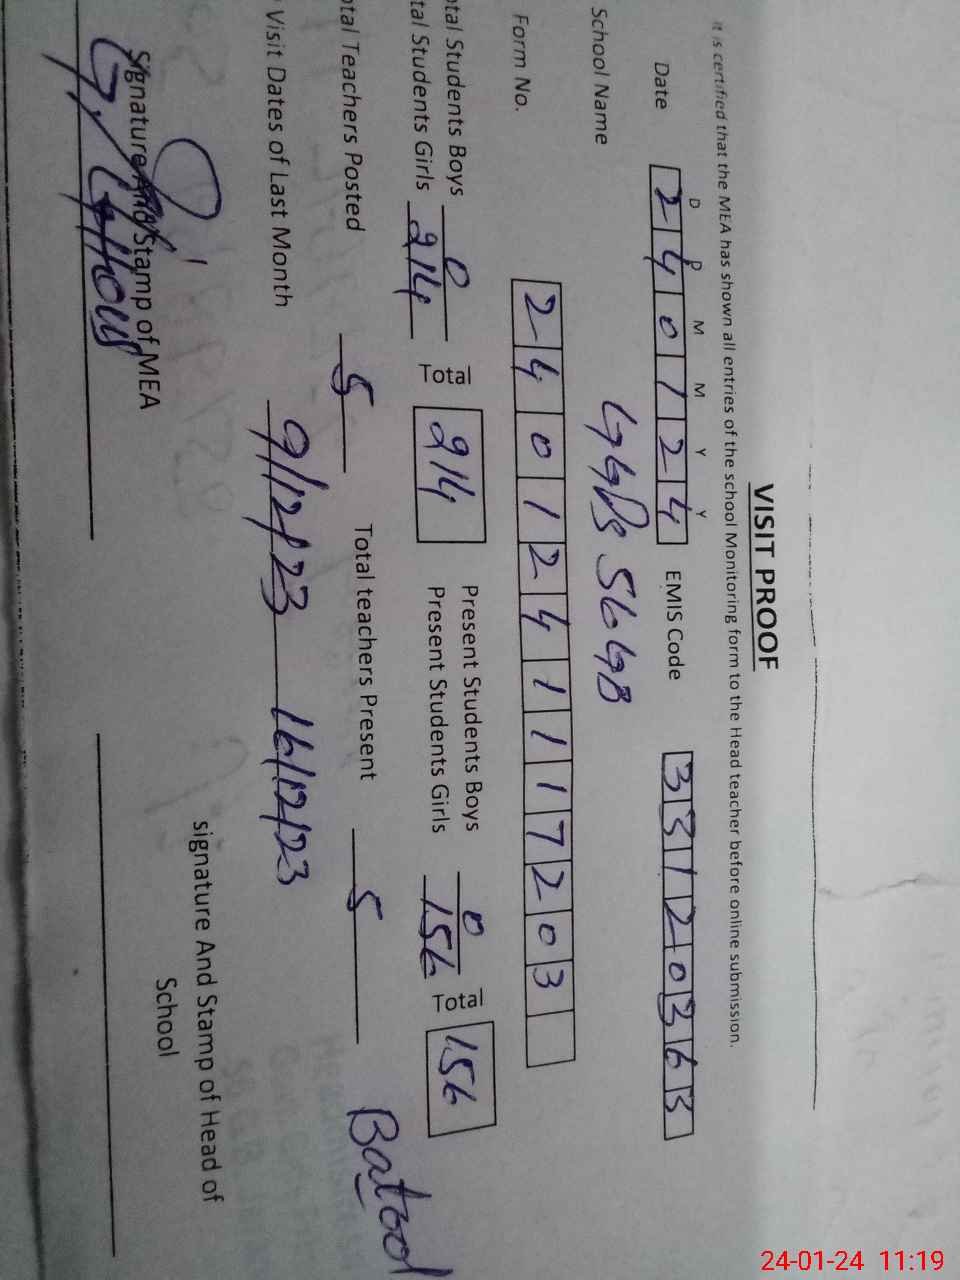 VISIT PROOF
It is certified that the MEA has shown all entries of the school Monitoring form to the Head teacher before online submission.
D D M M Y Y
Date 240124 EMIS Code 33120363
School Name GGPS 56 GB
Form No. 2401241117203
otal Students Boys 0 Present Students Boys 0
tal Students Girls 214 Total 214 Present Students Girls 156 Total 156
otal Teachers Posted 5 Total teachers Present 5
Visit Dates of Last Month 9/12/23 16/12/23
Batool
Signature And Stamp of MEA
signature And Stamp of Head of
School
24-01-24 11:19